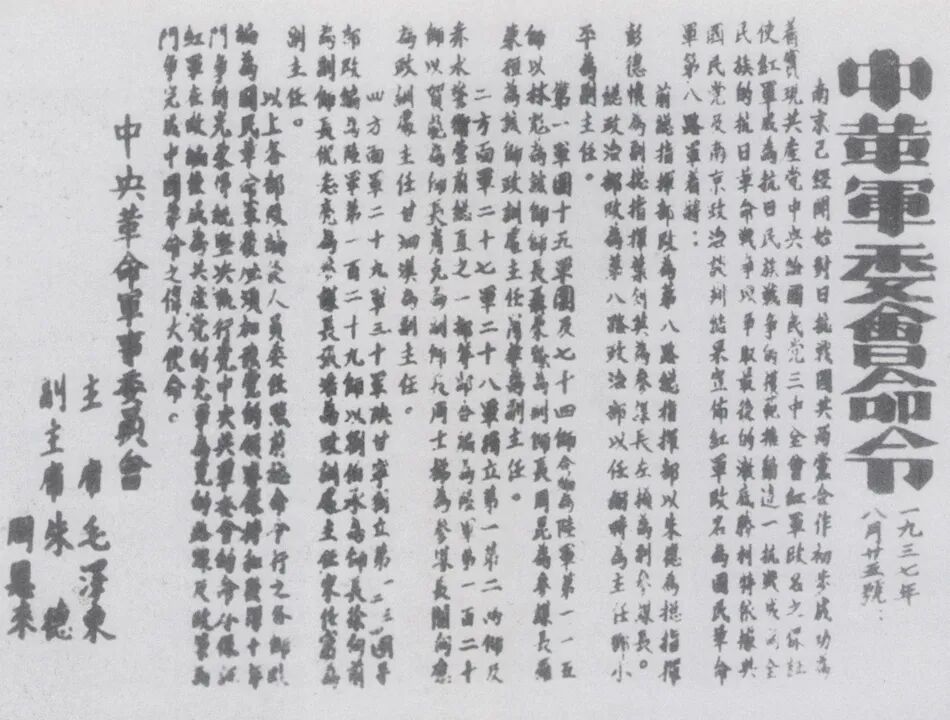 中革軍委會命令
一九三七年
八月廿五號：
南京已經開始對日抗戰國共兩黨合作初步成功為
着實現共產党中央給國民党三中全會紅軍改名之保証
使紅軍成為抗日民族戰爭的模範推動這一抗戰成為全
民族的抗日革命戰爭以爭取最後的澈底勝利特依據與
國民党及南京政治談判結果宣佈紅軍改名為國民革命
軍第八路軍着將：
前總指揮部改為第八路總指揮部以朱德為總指揮
彭德懷為副總指揮葉劍英為參謀長左權為副參謀長。
總政治部改為第八路政治部以任弼時為主任鄧小
平為副主任。
第一軍團十五軍團及七十四師合編為陸軍第一一五
師以林彪為該師師長聶榮臻為副師長周昆為參謀長羅
榮桓為該師政訓處主任蕭華為副主任。
二方面軍二十七軍二十八軍獨立第一第二兩師及
赤水警衛營前總直之一部等部合編為陸軍第一百二十
師以賀龍為師長蕭克為副師長周士梯為參謀長關向應
為政訓處主任甘泗淇為副主任。
四方面軍二十九軍三十軍陝甘寧獨立第一二三四團等
部改編為陸軍第一百二十九師以劉伯承為師長徐向前
為副師長倪志亮為參謀長張浩為政訓處主任宋任窮為
副主任。
以上各部改編後人員委任照前總命令行之各部改
編為國民革命軍後必須加強党的領導保持和發揚十年
鬥爭的光榮傳統堅決執行党中央與軍委會的命令保証
紅軍在改編後成為共產党的党軍為党的路線及政策而
鬥爭完成中國革命之偉大使命。
中央革命軍事委員會
主席 毛澤東
副主席 朱德
周恩來